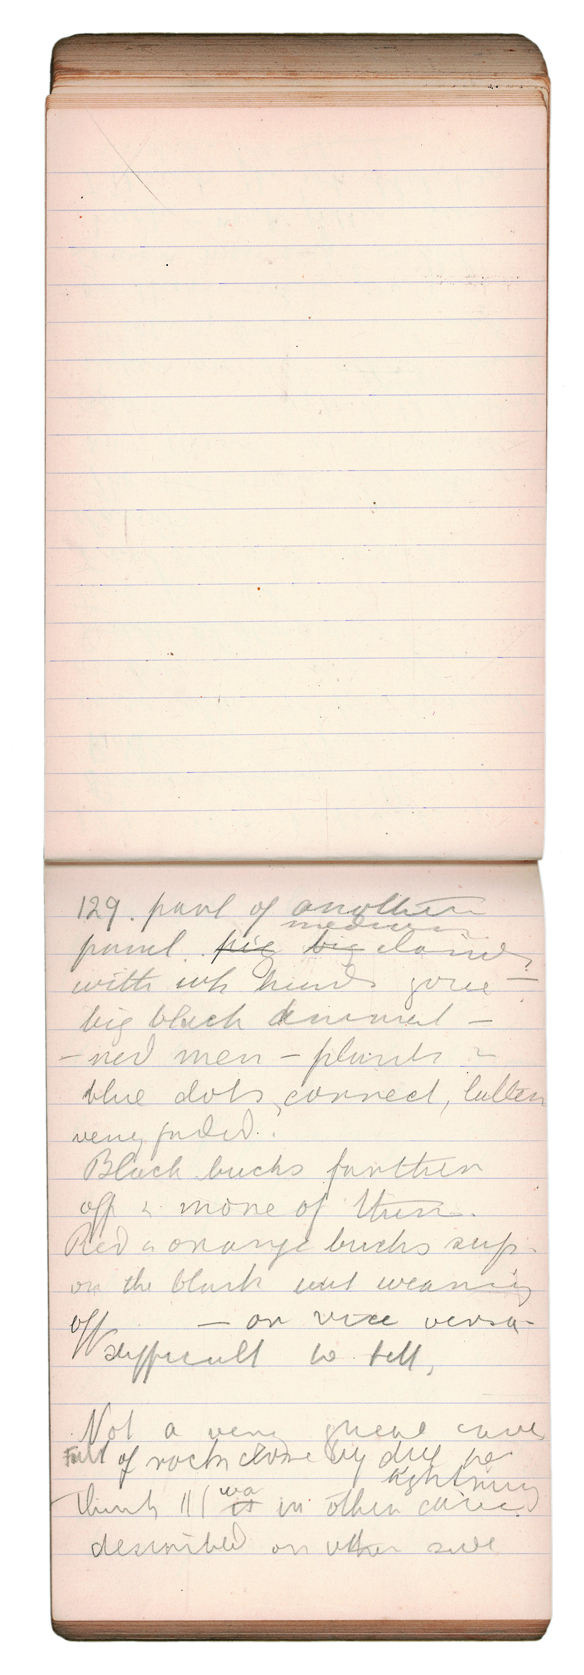 129. part of another
medium
panel. pig big elands
with wh heads gone –
big black animal –
– red men – plants &
blue dots, correct, latter
very faded.
Black bucks further
off & more of them.
Red & orange bucks sup.
on the black but wearing
off – or vice versa
difficult to tell,
Not a very great cave
Full of rocks close by
lightning
think 111 was is in other cave
described on other side